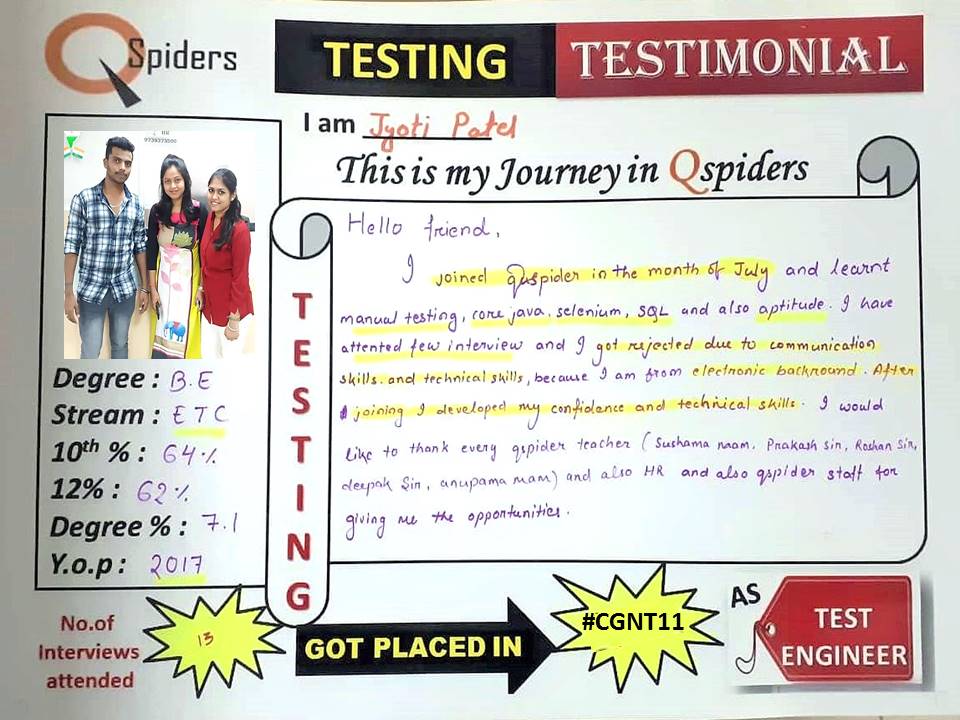 QSpiders
TESTING TESTIMONIAL
I am Jyoti Patel
This is my Journey in Qspiders
HR
Hello friend,
I joined Quspider in the month of July and learnt
manual testing, core java, selenium, SQL and also aptitude. I have
attented few interview and I got rejected due to communication
skills. and technical skills, because I am from electronic backround. After
joining I developed my confidence and technical skills. I would
like to thank every qspider teacher (Sushama mam, Prakash Sir, Roshan Sir,
deepak Sir, anupama mam) and also HR and also qspider staff for
giving me the opportunities.
TESTING
Degree : B.E
Stream : ETC
10th % : 64%
12% : 62%
Degree % : 7.1
Y.o.p : 2017
No.of
Interviews
attended
13
GOT PLACED IN
#CGNT11
AS
TEST
ENGINEER